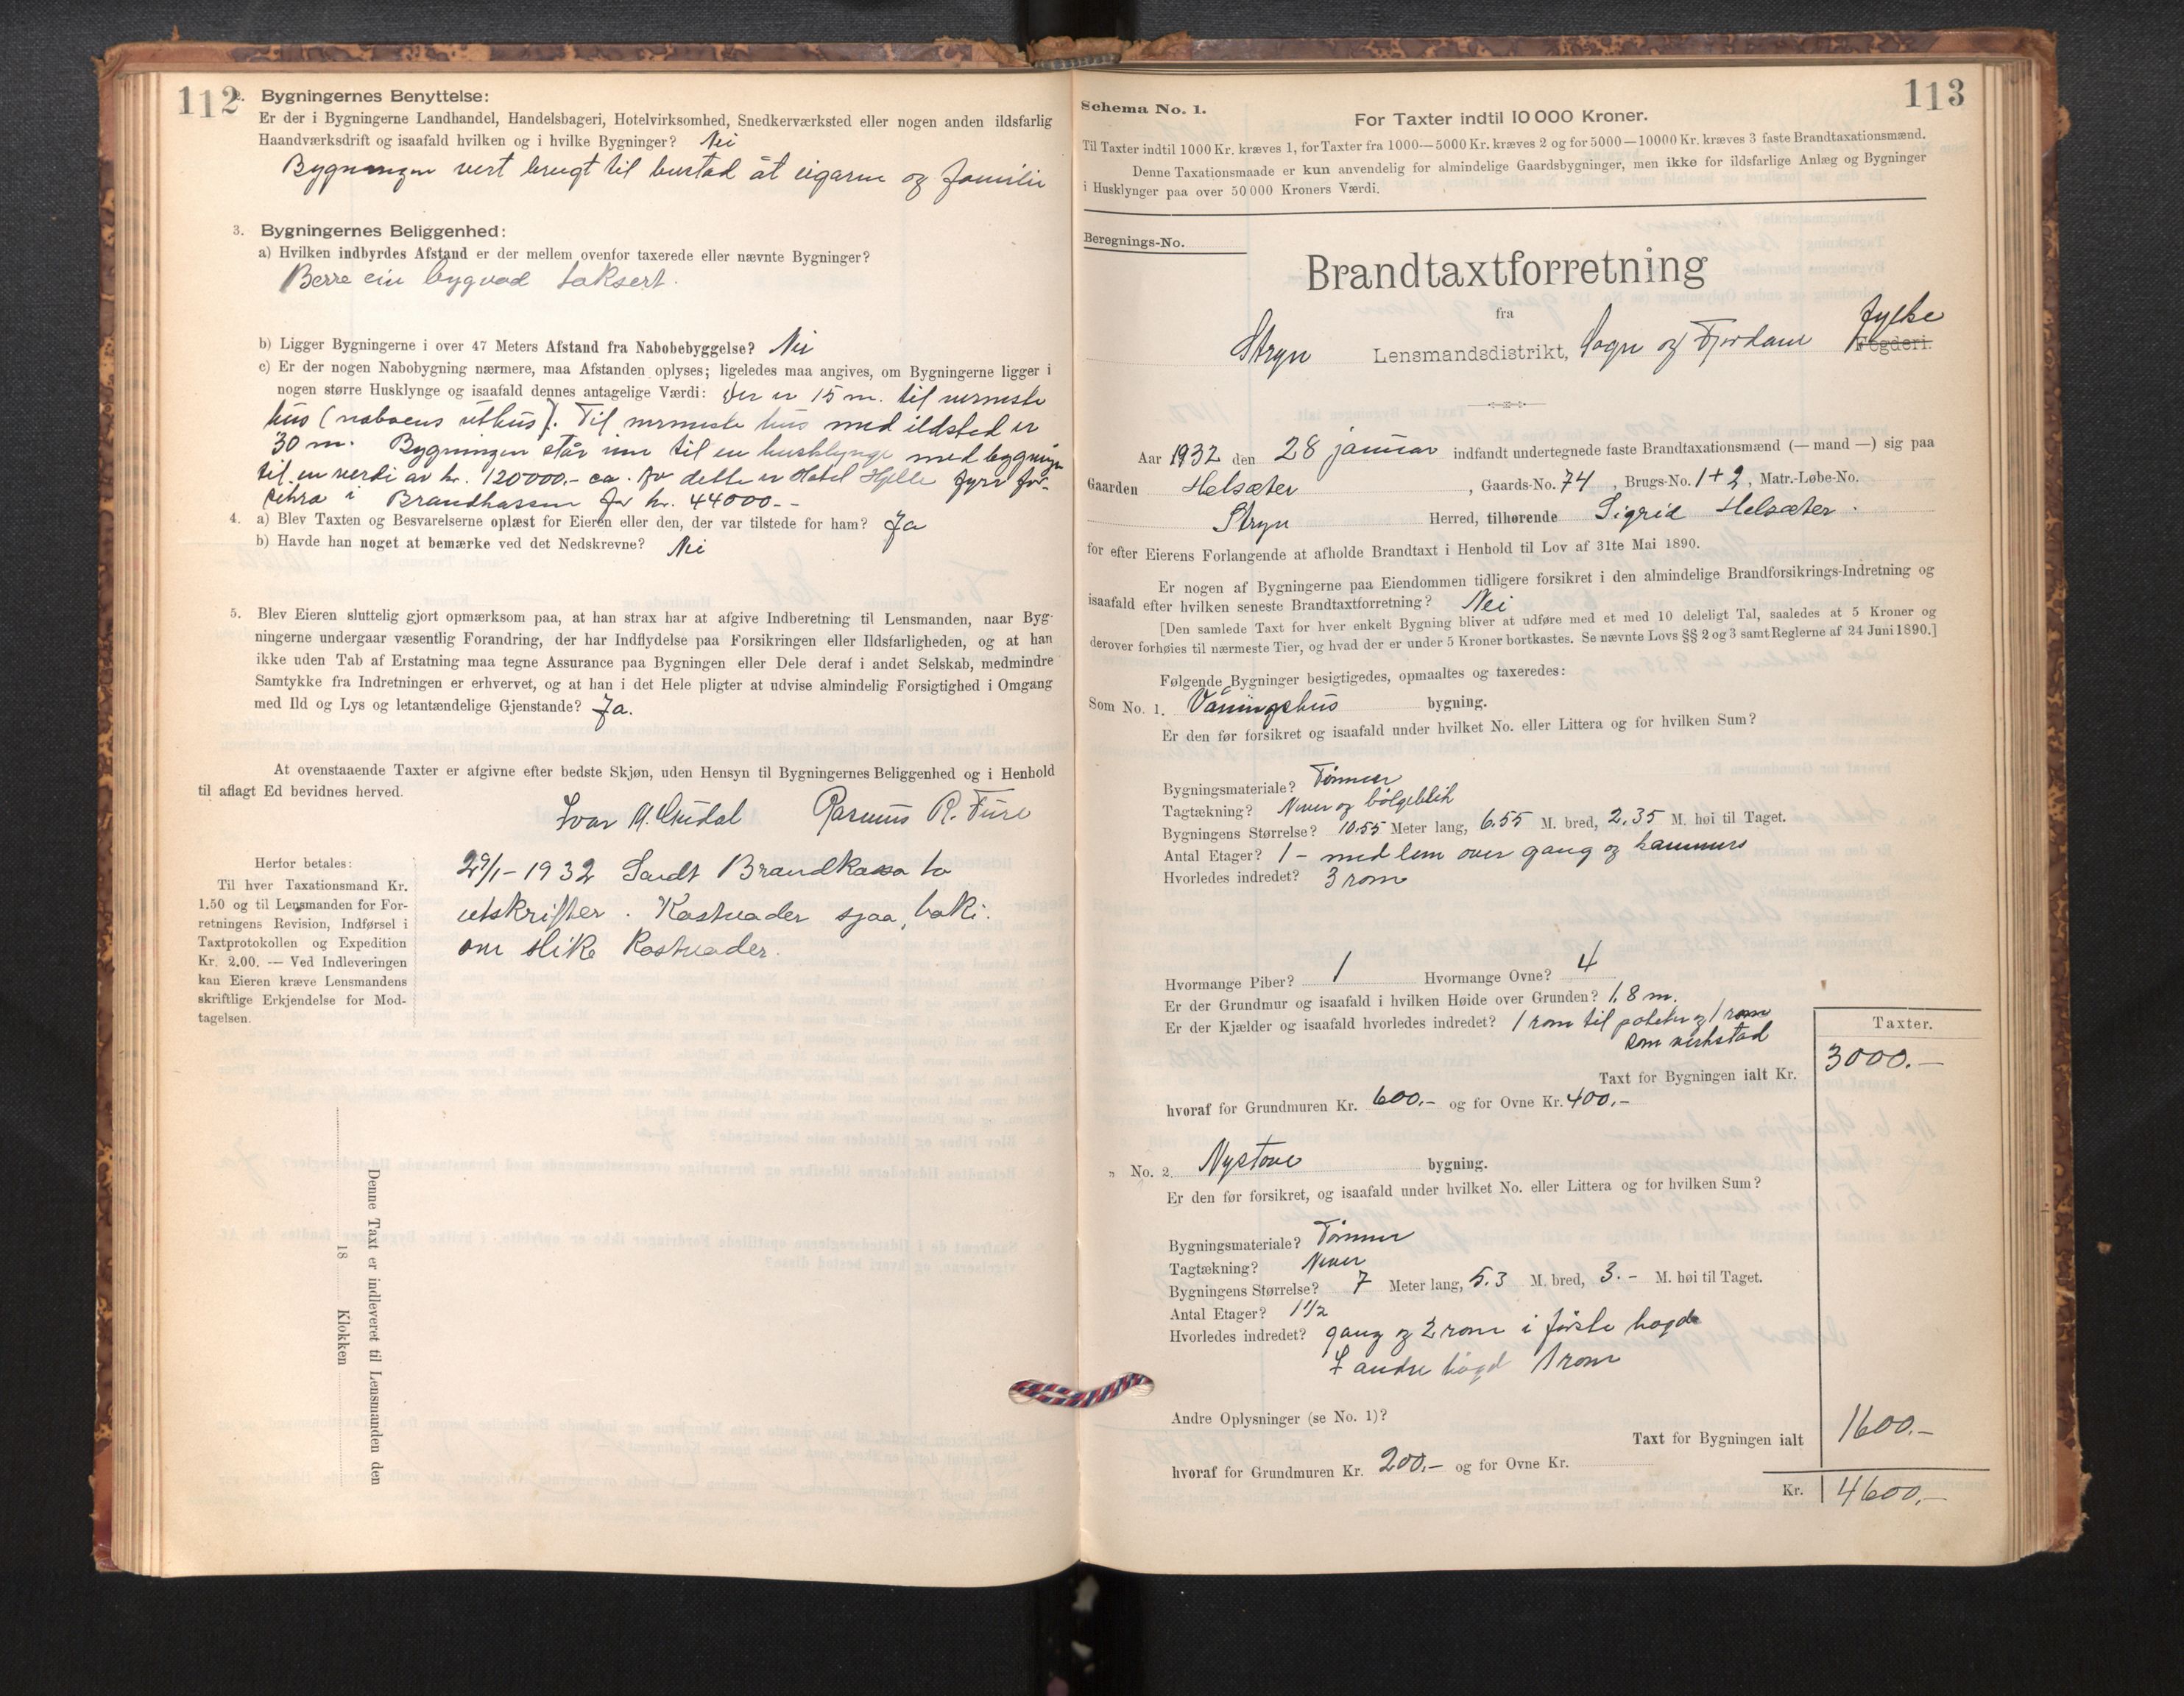 112
2. Bygningernes Benyttelse:
Er der i Bygningerne Landhandel, Handelsbageri, Hotelvirksomhed, Snedkerværksted eller nogen anden ildsfarlig
Haandværksdrift og isaafald hvilken og i hvilke Bygninger? Nei
Bygningen vert brugt til bustad åt eigaren og familie
3. Bygningernes Beliggenhed:
a) Hvilken indbyrdes Afstand er der mellem ovenfor taxerede eller nævnte Bygninger?
Berre ein bygnad taksert.
b) Ligger Bygningerne i over 47 Meters Afstand fra Nabobebyggelse? Nei
c) Er der nogen Nabobygning nærmere, maa Afstanden oplyses; ligeledes maa angives, om Bygningerne ligger i
nogen større Husklynge og isaafald dennes antagelige Værdi: Der er 15 m. til nermeste
hus (naboens uthus). Til nermeste hus med ildsted er
30 m. Bygningen står inn til en husklynge med bygningar
til en verdi av kr. 120000.- ca. Av dette er Hotel Hjelle fyrr for-
sikra i Brandkassen for kr. 44000.-
4. a) Blev Taxten og Besvarelserne oplæst for Eieren eller den, der var tilstede for ham? Ja
b) Havde han noget at bemærke ved det Nedskrevne? Nei
5. Blev Eieren sluttelig gjort opmærksom paa, at han strax har at afgive Indberetning til Lensmanden, naar Byg-
ningerne undergaar væsentlig Forandring, der har Indflydelse paa Forsikringen eller Ildsfarligheden, og at han
ikke uden Tab af Erstatning maa tegne Assurance paa Bygningen eller Dele deraf i andet Selskab, medmindre
Samtykke fra Indretningen er erhvervet, og at han i det Hele pligter at udvise almindelig Forsigtighed i Omgang
med Ild og Lys og letantændelige Gjenstande? Ja.
At ovenstaaende Taxter er afgivne efter bedste Skjøn, uden Hensyn til Bygningernes Beliggenhed og i Henhold
til aflagt Ed bevidnes herved.
Ivar M. Rasmus R. Fure
Herfor betales:
Til hver Taxationsmand Kr.
1.50 og til Lensmanden for For-
retningens Revision, Indførsel i
Taxtprotokollen og Expedition
Kr. 2.00. — Ved Indleveringen
kan Eieren kræve Lensmandens
skriftlige Erkjendelse for Mod-
tagelsen.
29/1-1932 Sendt Brandkassa to
utskrifter. Kostnader sjaa, baki.
om slike Kostnader.
Denne Taxt er indleveret til Lensmanden den
18 Klokken
113
Schema No. 1.
For Taxter indtil 10 000 Kroner.
Til Taxter indtil 1000 Kr. kræves 1, for Taxter fra 1000—5000 Kr. kræves 2 og for 5000—10000 Kr. kræves 3 faste Brandtaxationsmænd.
Denne Taxationsmaade er kun anvendelig for almindelige Gaardsbygninger, men ikke for ildsfarlige Anlæg og Bygninger
i Husklynger paa over 50 000 Kroners Værdi.
Beregnings-No.
Brandtaxtforretning
fra
Stryn Lensmandsdistrikt, Sogn og Fjordane fylke Fogderi.
Aar 1932 den 28 januar indfandt undertegnede faste Brandtaxationsmænd (— mand —) sig paa
Gaarden Helsæter, Gaards-No. 74, Brugs-No. 1+2, Matr.-Løbe-No.
Stryn Herred, tilhørende Sigrid Helsæter.
for efter Eierens Forlangende at afholde Brandtaxt i Henhold til Lov af 31te Mai 1890.
Er nogen af Bygningerne paa Eiendommen tidligere forsikret i den almindelige Brandforsikrings-Indretning og
isaafald efter hvilken seneste Brandtaxtforretning? Nei
[Den samlede Taxt for hver enkelt Bygning bliver at udføre med et med 10 deleligt Tal, saaledes at 5 Kroner og
derover forhøies til nærmeste Tier, og hvad der er under 5 Kroner bortkastes. Se nævnte Lovs §§ 2 og 3 samt Reglerne af 24 Juni 1890.]
Følgende Bygninger besigtigedes, opmaaltes og taxeredes:
Som No. 1. Våningshus bygning.
Er den før forsikret og isaafald under hvilket No. eller Littera og for hvilken Sum?
Bygningsmateriale? Tømmer
Tagtækning? Never og bølgeblik
Bygningens Størrelse? 10.55 Meter lang, 6.55 M. bred, 2.35 M. høi til Taget.
Antal Etager? 1 - med lem over gang og kammers
Hvorledes indredet? 3 rom
Hvormange Piber? 1 Hvormange Ovne? 4
Er der Grundmur og isaafald i hvilken Høide over Grunden? 1,8 m.
Er der Kjælder og isaafald hvorledes indredet? 1 rom til poteter og 1 rom
som verkstad
Taxter.
Taxt for Bygningen ialt Kr. 3000.-
hvoraf for Grundmuren Kr. 600.- og for Ovne Kr. 400,-
„ No. 2 Nystove bygning.
Er den før forsikret, og isaafald under hvilket No. eller Littera og for hvilken Sum?
Bygningsmateriale? Tømmer
Tagtækning? Never
Bygningens Størrelse? 7 Meter lang, 5.3 M. bred, 3.- M. høi til Taget.
Antal Etager? 1 1/2
Hvorledes indredet? gang og 2 rom i første høgd
I andre høgd 1 rom
Andre Oplysninger (se No. 1)?
Taxt for Bygningen ialt 1600.-
hvoraf for Grundmuren Kr. 200,- og for Ovne Kr.
Kr. 4600,-